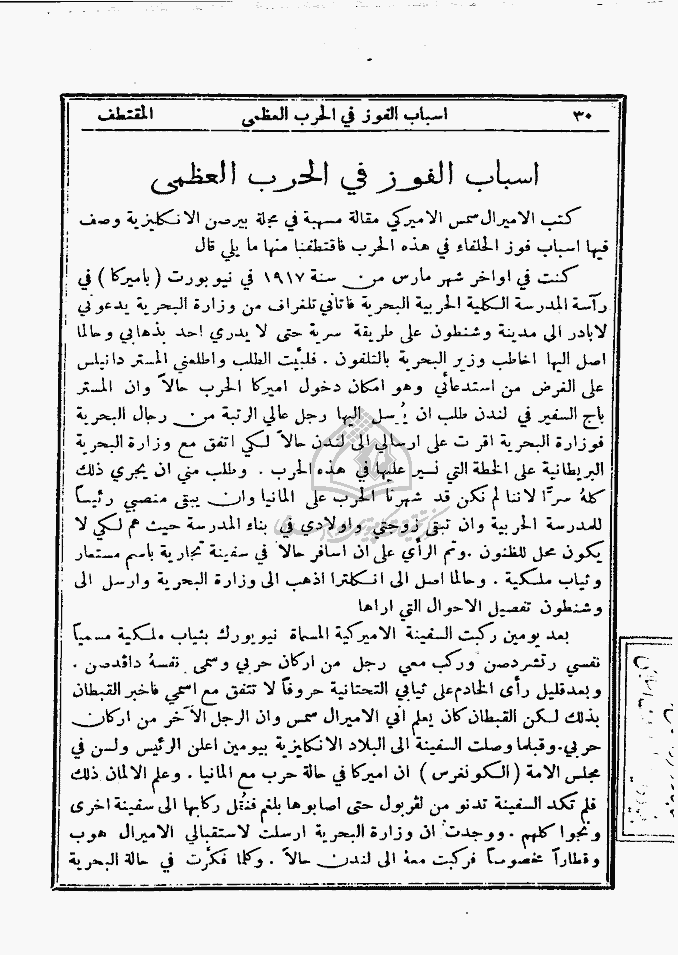 ٣٠ اسباب الفوز في الحرب العظمى المقتطف
اسباب الفوز في الحرب العظمى
كتب الاميرال سمس الاميركي مقالة مسهبة في مجلة بيرصن الانكليزية وصف
فيها اسباب فوز الحلفاء في هذه الحرب فاقتطفنا منها ما يلي قال
كنت في اواخر شهر مارس من سنة ١٩١٧ في نيوبورت ( باميركا ) في
رآسة المدرسة الكلية الحربية البحرية فاتاني تلغراف من وزارة البحرية يدعوني
لابادر الى مدينة وشنطون على طريقة سرية حتى لا يدري احد بذهابي وحالما
اصل اليها اخاطب وزير البحرية بالتلفون . فلبَّيت الطلب واطلعني المستر دانيلس
على الغرض من استدعائي وهو امكان دخول اميركا الحرب حالاً وان المستر
باج السفير في لندن طلب ان يُرسل اليها رجل عالي الرتبة من رجال البحرية
فوزارة البحرية اقرت على ارسالي الى لندن حالاً لكي اتفق مع وزارة البحرية
البريطانية على الخطة التي نسير عليها في هذه الحرب . وطلب مني ان يجري ذلك
كلهُ سرًّا لاننا لم نكن قد شهرنا الحرب على المانيا وان يبقى منصبي رئيساً
للمدرسة الحربية وان تبقى زوجتي واولادي في بناء المدرسة حيث هم لكي لا
يكون محل للظنون .وتم الرأي على ان اسافر حالاً في سفينة تجارية باسم مستعار
وثياب ملكية . وحالما اصل الى انكلترا اذهب الى وزارة البحرية وارسل الى
وشنطون تفصيل الاحوال التي اراها
بعد يومين ركبت السفينة الاميركية المسماة نيويورك بثياب ملكية مسمياً
نفسي رتشردصن وركب معي رجل من اركان حربي وسمى نفسهُ داڤدصن .
وبعد قليل رأى الخادم على ثيابي التحتانية حروفاً لا تتفق مع اسمي فاخبر القبطان
بذلك لكن القبطان كان يعلم اني الاميرال سمس وان الرجل الآخر من اركان
حربي.وقبلما وصلت السفينة الى البلاد الانكليزية بيومين اعلن الرئيس ولسن في
مجلس الامة ( الكونغرس ) ان اميركا في حالة حرب مع المانيا . وعلم الالمان ذلك
فلم تكد السفينة تدنو من لڤربول حتى اصابوها بلغم فنُقل ركابها الى سفينة اخرى
ونجوا كلهم . ووجدت ان وزارة البحرية ارسلت لاستقبالي الاميرال هوب
وقطاراً مخصوصاً فركبت معهُ الى لندن حالاً . وكلما فكَّرت في حالة البحرية